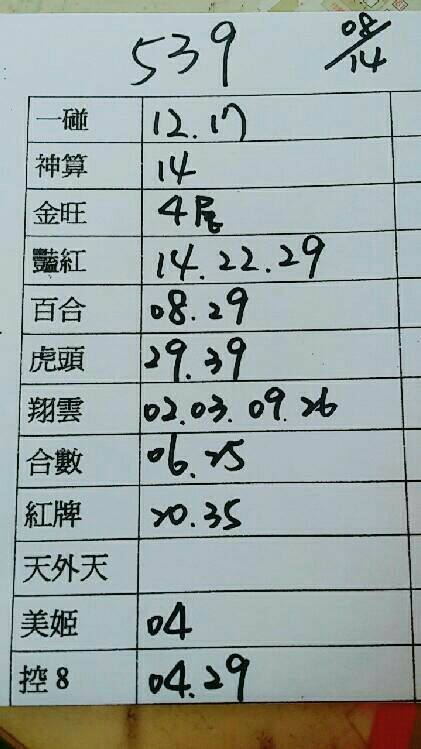 539 08/14
一碰 12.17
神算 14
金旺 4尾
豔紅 14.22.29
百合 08.29
虎頭 29.39
翔雲 02.03.09.26
合數 06.25
紅牌 20.35
天外天
美姬 04
控8 04.29